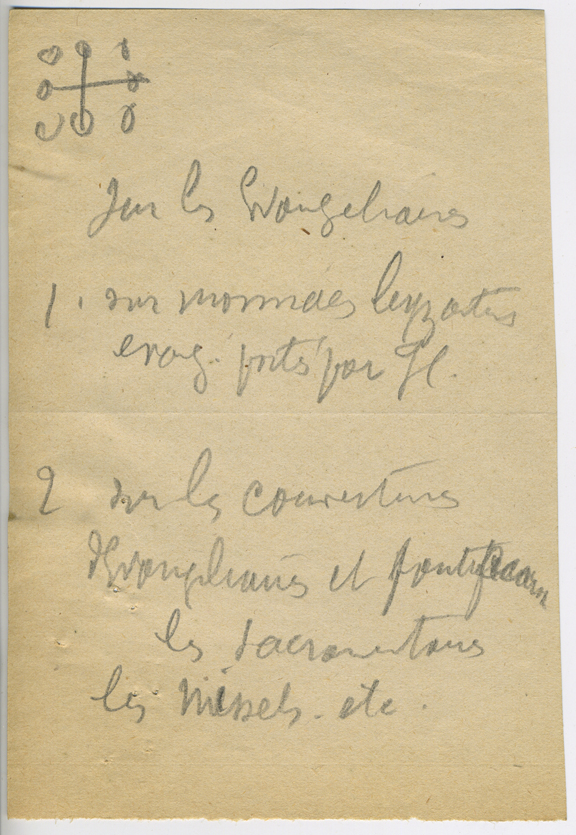 Sur les Evangeliaires
1. sur monnaies byzantins
evang. portés par
2 sur les couvertures
d'Evangeliaires et pontificaux
les sacramentaires
les Missels. etc.